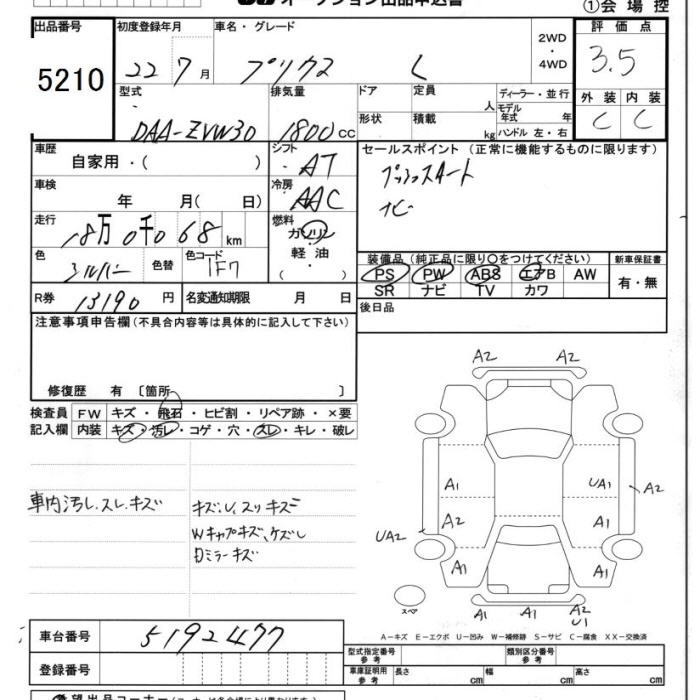 オークション出品申込書 ①会場控
出品番号 初度登録年月 車名・グレード 評価点
5210 22 7月 プリウス L 2WD ・ 4WD 3.5
型式 排気量 ドア 定員 人 ディーラー・並行 外装 内装
DAA-ZVW30 1800cc 形状 積載 kg モデル年式 年 ハンドル 左・右 C C
車歴 自家用・( ) シフト AT セールスポイント (正常に機能するものに限ります)
車検 年 月( 日) 冷房 AAC プッシュスタート
ナビ
走行 18万0千068km 燃料 ガソリン
軽・油
( )
色 シルバー 色替 色コード 1F7
装備品(純正品に限り○をつけてください) 新車保証書
PS PW ABS エアB AW 有・無
SR ナビ TV カワ
R券 13190円 名変通知期限 月 日 後日品
注意事項申告欄(不具合内容等は具体的に記入して下さい)
修復歴 有 〔箇所 〕
検査員 FW キズ・飛石・ヒビ割・リペア跡・×要
記入欄 内装 キズ・汚レ・コゲ・穴・スレ・キレ・破レ
A2 A2
A1 UA1 A2
A2 A1
UA2
A1 A1
スペア A1 A1 A2
U1
車内汚レ、スレ、キズ
キズ、U、スリキズ
Wキャップキズ、ケズレ
Dミラーキズ
A-キズ E-エクボ U-凹み W-補修跡 S-サビ C-腐食 XX-交換済
車台番号 5192477
型式指定番号 参考 類別区分番号 参考
登録番号 車庫証明用 参考 長さ cm 幅 cm 高さ cm